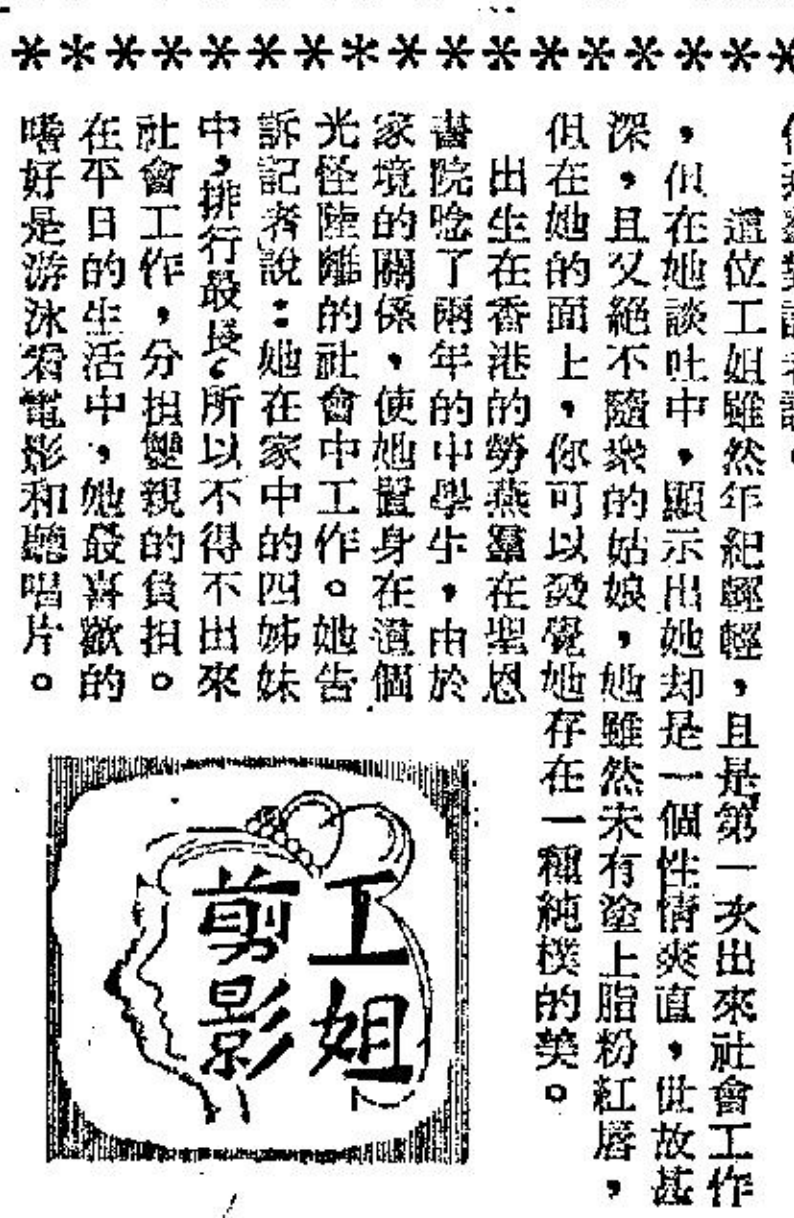 這位工姐雖然年紀輕輕，且是第一次出來社會工作
，但在她談吐中，顯示出她却是一個性情爽直，世故甚
深，且又絕不隨衆的姑娘，她雖然未有塗上脂粉紅唇，
但在她的面上，你可以發覺她存在一種純樸的美。
出生在香港的勞燕羣在聖恩
書院唸了兩年的中學生，由於
家境的關係，使她置身在這個
光怪陸離的社會中工作。她告
訴記者說：她在家中的四姊妹
中，排行最長，所以不得不出來
社會工作，分担雙親的負担。
在平日的生活中，她最喜歡的
嗜好是游泳看電影和聽唱片。
工姐
剪影